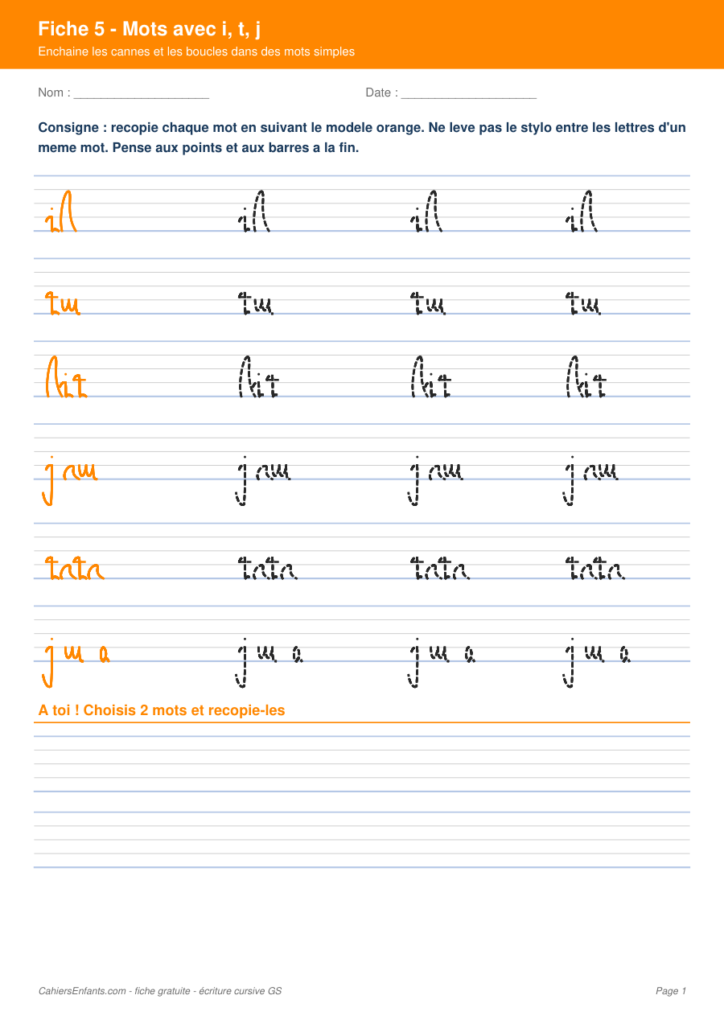 Fiche 5 - Mots avec i, t, j
Enchaine les cannes et les boucles dans des mots simples
Nom : ____________________ Date : ____________________
Consigne : recopie chaque mot en suivant le modele orange. Ne leve pas le stylo entre les lettres d'un
meme mot. Pense aux points et aux barres a la fin.
il il il il
tu tu tu tu
tata tata tata tata
A toi ! Choisis 2 mots et recopie-les
CahiersEnfants.com - fiche gratuite - écriture cursive GS Page 1